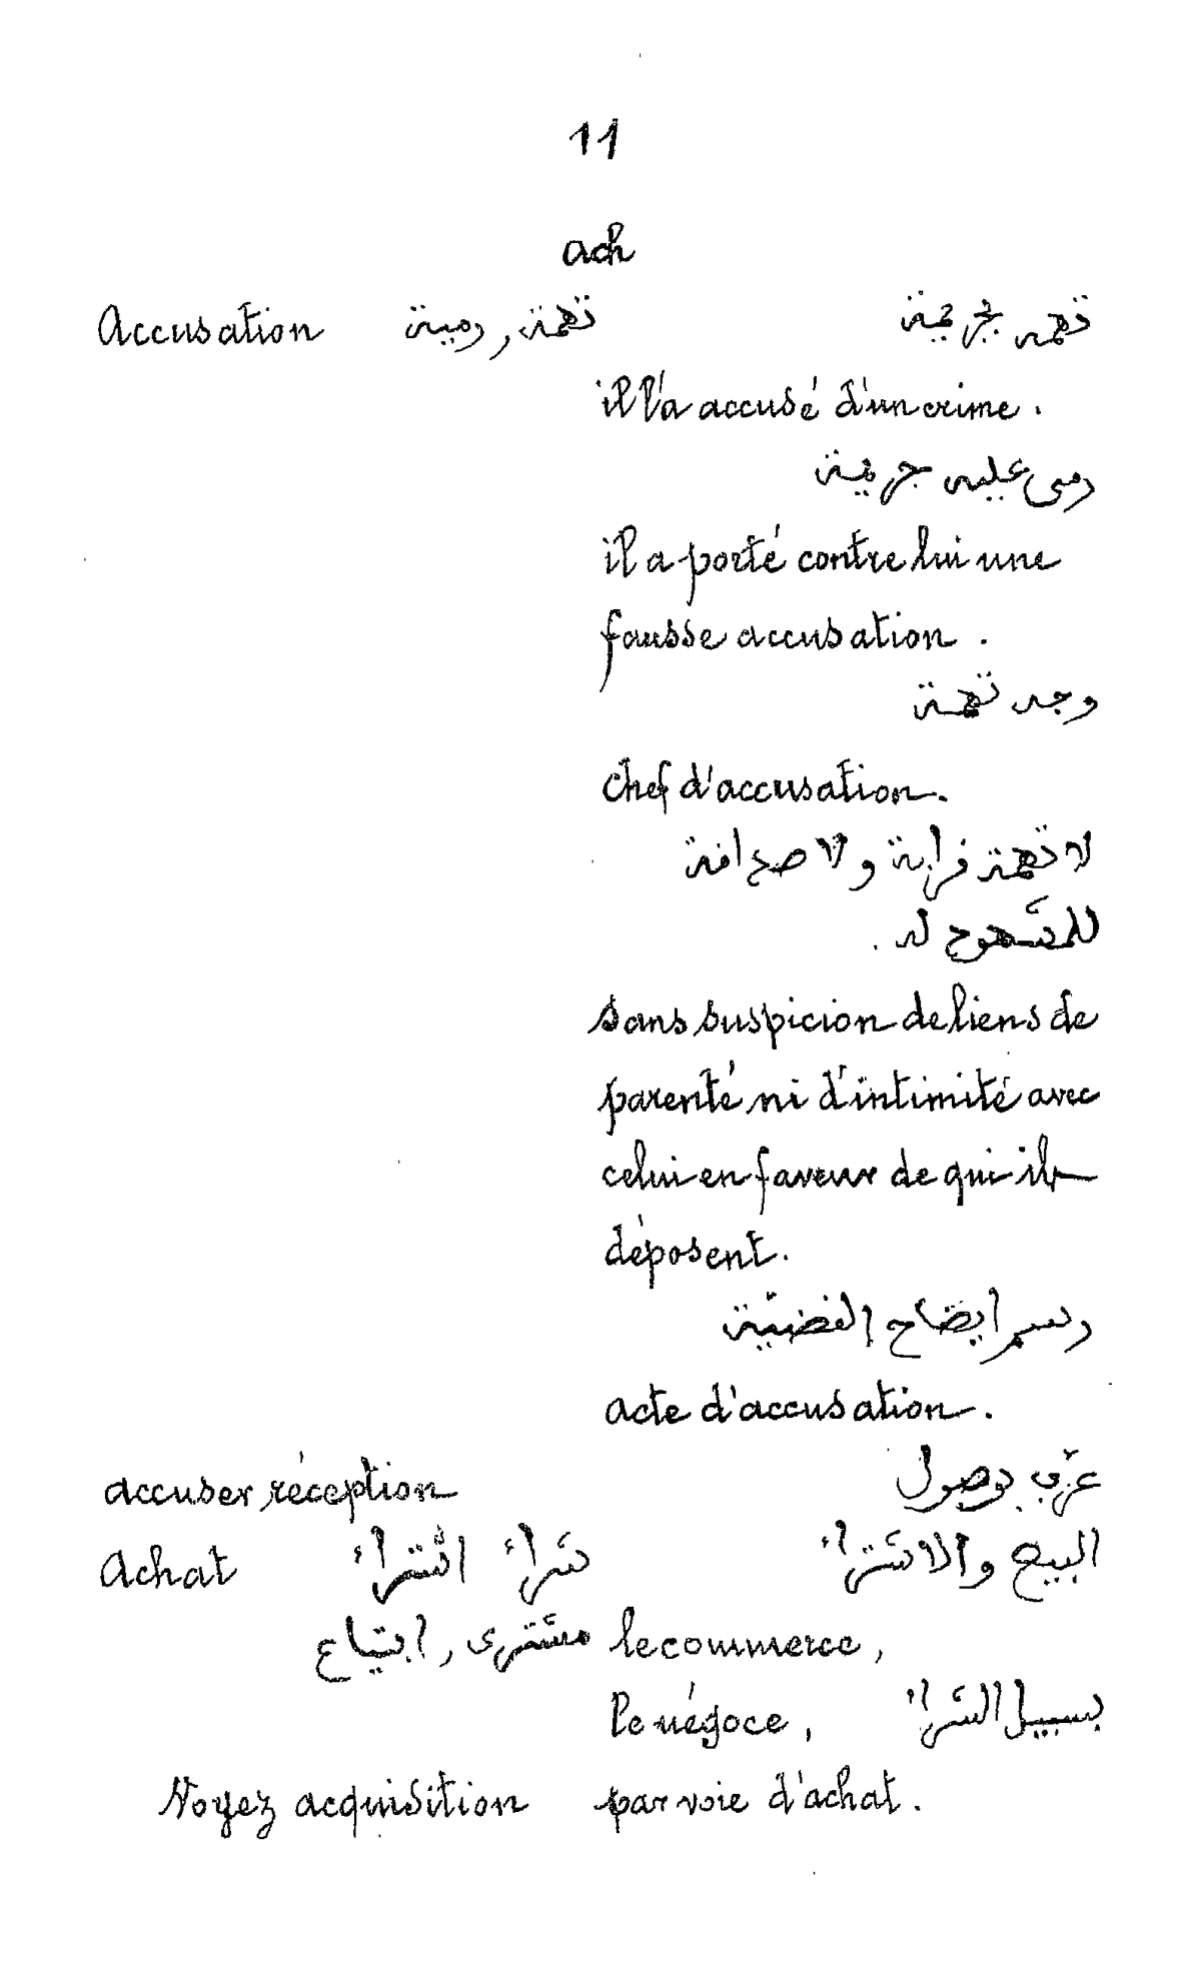 11
ach
Accusation تهمة, رمية تهمه بجريمة
il l'a accusé d'un crime.
رمى عليه جريمة
il a porté contre lui une
fausse accusation.
وجه تهمة
chef d'accusation.
لا تهمة قرابة ولا صداقة
للمشهود له.
sans suspicion de liens de
parenté ni d'intimité avec
celui en faveur de qui ils
déposent.
رسم ايضاح القضيّة
acte d'accusation.
accuser réception عرّف بوصول
Achat شراء اشتراء البيع والاشتراء
مشترى, ابتياع le commerce,
le négoce, بسبيل الشراء
Voyez acquisition par voie d'achat.